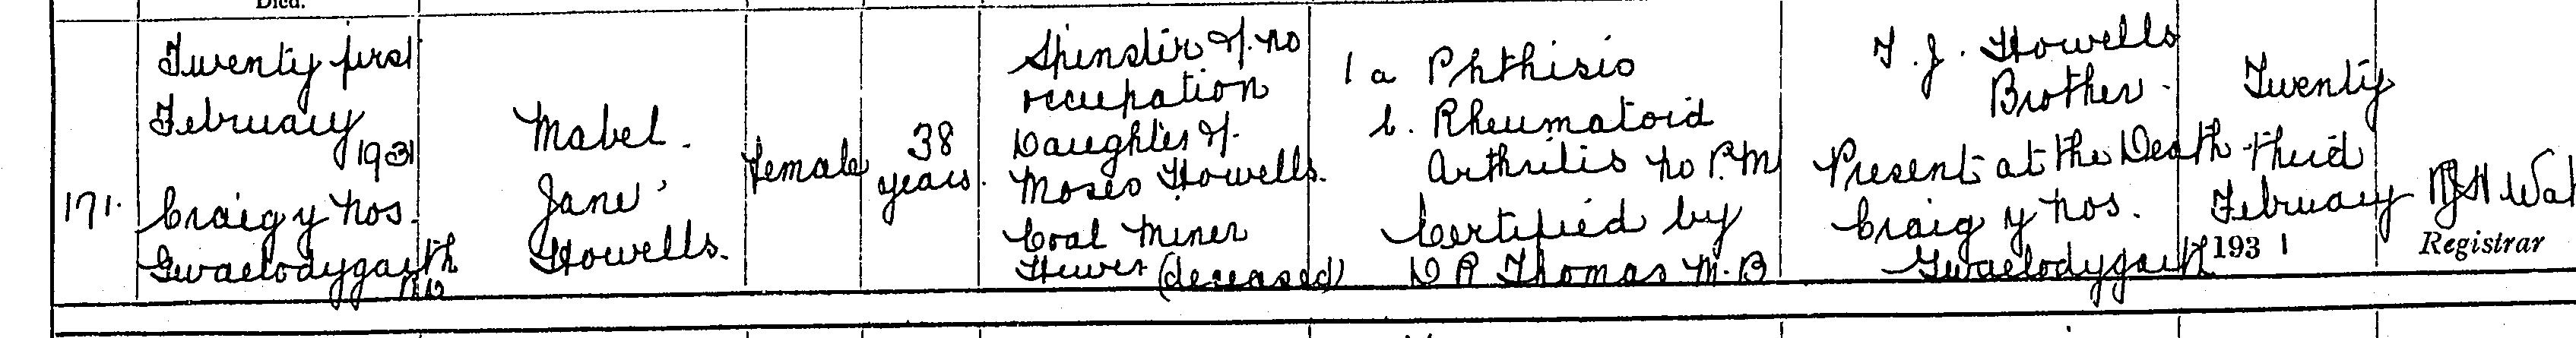 Died.
171.
Twenty first
February
1931
Craig y nos.
Gwaelodygarth
R.D
Mabel.
Jane
Howells.
Female
38
years.
Spinster of no
occupation
Daughter of
Moses Howells.
Coal Miner
Hewer (deceased)
1 a Phthisis
b. Rheumatoid
Arthritis no P.M
Certified by
D R Thomas M.B
T. J. Howells
Brother.
Present at the Death
Craig y nos.
Gwaelodygarth
Twenty
third
February
1931
Registrar